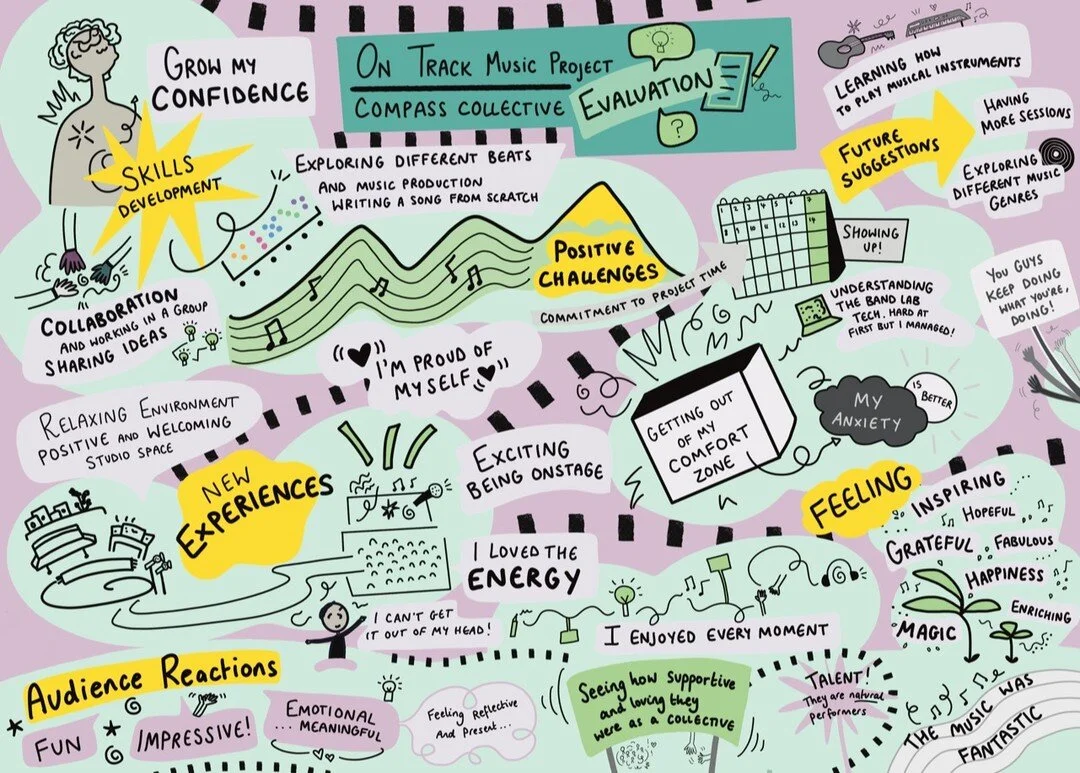 GROW MY
CONFIDENCE
SKILLS
DEVELOPMENT
COLLABORATION
AND WORKING IN A GROUP
SHARING IDEAS
ON TRACK MUSIC PROJECT
COMPASS COLLECTIVE
EVALUATION
?
EXPLORING DIFFERENT BEATS
AND MUSIC PRODUCTION
WRITING A SONG FROM SCRATCH
POSITIVE
CHALLENGES
COMMITMENT TO PROJECT TIME
SHOWING
UP!
UNDERSTANDING
THE BAND LAB
TECH. HARD AT
FIRST BUT I MANAGED!
LEARNING HOW
TO PLAY MUSICAL INSTRUMENTS
FUTURE
SUGGESTIONS
HAVING
MORE SESSIONS
EXPLORING
DIFFERENT MUSIC
GENRES
YOU GUYS
KEEP DOING
WHAT YOU'RE,
DOING!
"I'M PROUD OF
MYSELF"
GETTING OUT
OF MY
COMFORT
ZONE
MY
ANXIETY
IS
BETTER
RELAXING ENVIRONMENT
POSITIVE AND WELCOMING
STUDIO SPACE
NEW
EXPERIENCES
EXCITING
BEING ONSTAGE
I LOVED THE
ENERGY
I CAN'T GET
IT OUT OF MY HEAD!
I ENJOYED EVERY MOMENT
FEELING
INSPIRING
HOPEFUL
GRATEFUL
FABULOUS
HAPPINESS
ENRICHING
MAGIC
Audience Reactions
FUN
IMPRESSIVE!
EMOTIONAL
... MEANINGFUL
Feeling Reflective
And Present...
Seeing how supportive
and loving they
were as a COLLECTIVE
TALENT!
They are natural
performers
THE MUSIC WAS
FANTASTIC